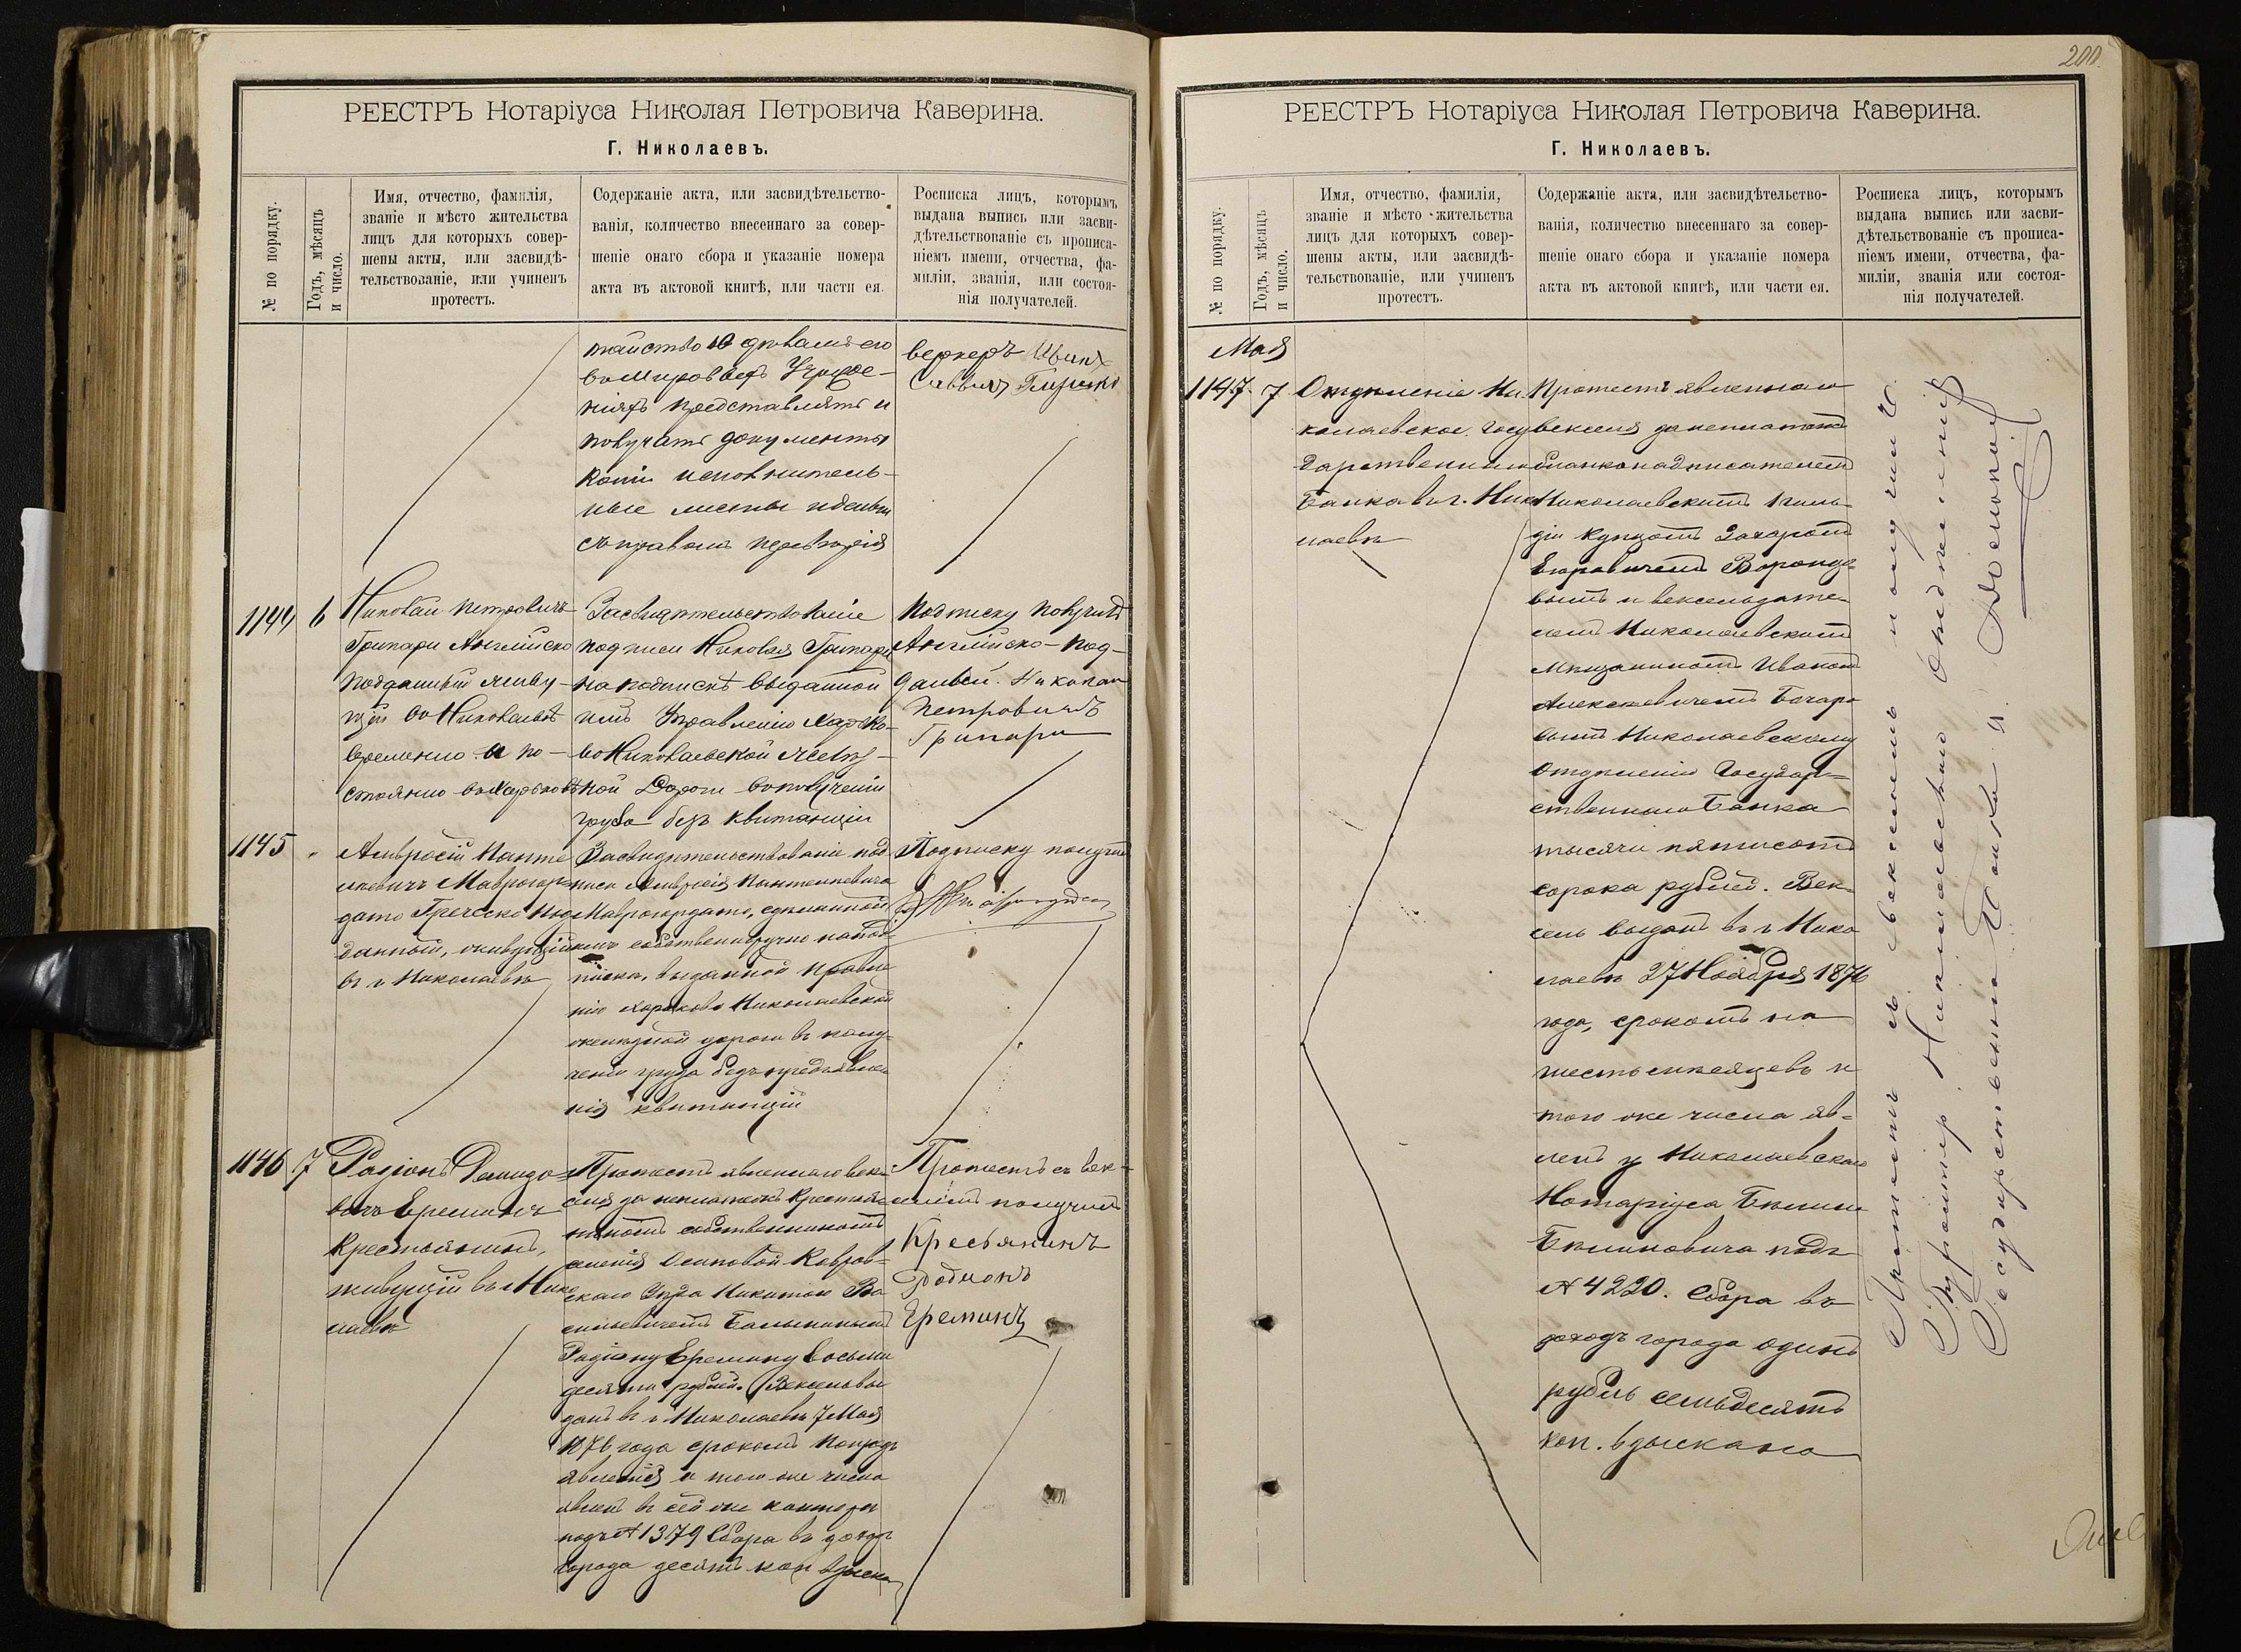 РЕЕСТРЪ Нотаріуса Николая Петровича Каверина.
Г. Николаевъ.
№ по порядку.
Годъ, мѣсяцъ
и число.
Имя, отчество, фамилія,
званіе и мѣсто жительства
лицъ для которыхъ совер-
шены акты, или засвидѣ-
тельствованіе, или учиненъ
протестъ.
Содержаніе акта, или засвидѣтельство-
ванія, количество внесеннаго за совер-
шеніе онаго сбора и указаніе номера
акта въ актовой книгѣ, или части ея.
Росписка лицъ, которымъ
выдана выпись или засви-
дѣтельствованіе съ прописа-
ніемъ имени, отчества, фа-
миліи, званія, или состоя-
нія получателей.
представлять и
получать документы
копіи исполнитель-
ные листы
съ правомъ
1144 6
Николай Петровичъ
Грипари Англійско
подданный живу-
щій въ Николаевѣ
временно и по-
стоянно въ Харьковѣ
Засвидѣтельствованіе
подписи Николая Грипари
на подпискѣ выданной
имъ Управленію Харько-
во Николаевской Желѣз-
ной Дороги въ полученіи
груза безъ квитанціи
подписку получилъ
Англійско-под-
данный Николай
Петровичъ
Грипари
1145 "
Амвросій Панте
леевичъ Маврогор-
дато Греческо под
данный, живущій
въ г Николаевѣ
Засвидѣтельствованіе под
писи Амвросія Пантелеевича
Маврогордато, сдѣланной
имъ собственноручно на под
пискѣ, выданной Правле
нію Харьково Николаевской
желѣзной дороги въ полу-
ченіи груза безъ предъявле
нія квитанціи
Подписку получилъ
1146 7
Радіонъ Демидо-
вичъ Ереминъ
Крестьянинъ,
живущій въ Нико
лаевѣ
Протестъ явленнаго век-
селя за неплатежъ крестья-
ниномъ собственникомъ
Ковров-
скаго Уѣзда Никитою Ва
сильевичемъ
Радіону Еремину восьми
десяти рублей. Вексель вы
данъ въ г Николаевѣ 7 Мая
1876 года срокомъ по
явленія и того же числа
явленъ въ сей же конторѣ
подъ № 1379 Сбора въ доходъ
города десять коп взыска
Протестъ съ век-
селемъ получилъ
Кресьянинъ
Родионъ
Ереминъ
200.
РЕЕСТРЪ Нотаріуса Николая Петровича Каверина.
Г. Николаевъ.
№ по порядку.
Годъ, мѣсяцъ
и число.
Имя, отчество, фамилія,
званіе и мѣсто жительства
лицъ для которыхъ совер-
шены акты, или засвидѣ-
тельствованіе, или учиненъ
протестъ.
Содержаніе акта, или засвидѣтельство-
ванія, количество внесеннаго за совер-
шеніе онаго сбора и указаніе номера
акта въ актовой книгѣ, или части ея.
Росписка лицъ, которымъ
выдана выпись или засви-
дѣтельствованіе съ прописа-
ніемъ имени, отчества, фа-
миліи, званія или состоя-
нія получателей.
Мая
1147. 7
Отдѣленіе Ни
колаевское Госу
дарственнаго
Банка въ г. Нико
лаевѣ
Протестъ явленнаго
векселя за неплатежъ
бланконадписателемъ
Николаевскимъ 1 гиль-
діи купцомъ Захаромъ
вымъ и векселедате-
лемъ Николаевскимъ
мѣщаниномъ Иваномъ
Алексѣевичемъ
Николаевскому
Отдѣленію Государ-
ственнаго Банка
тысячи пятисотъ
сорока рублей. Век-
сель выданъ въ г Нико
лаевѣ 27 Ноября 1876
года, срокомъ на
шесть мѣсяцевъ и
того же числа яв-
ленъ у Николаевскаго
Нотаріуса
подъ
№ 4220. Сбора въ
доходъ города одинъ
рубль семьдесятъ
коп. взыскано
Протестъ съ векселемъ получилъ
Николаевскаго Отдѣленія
Государственнаго Банка